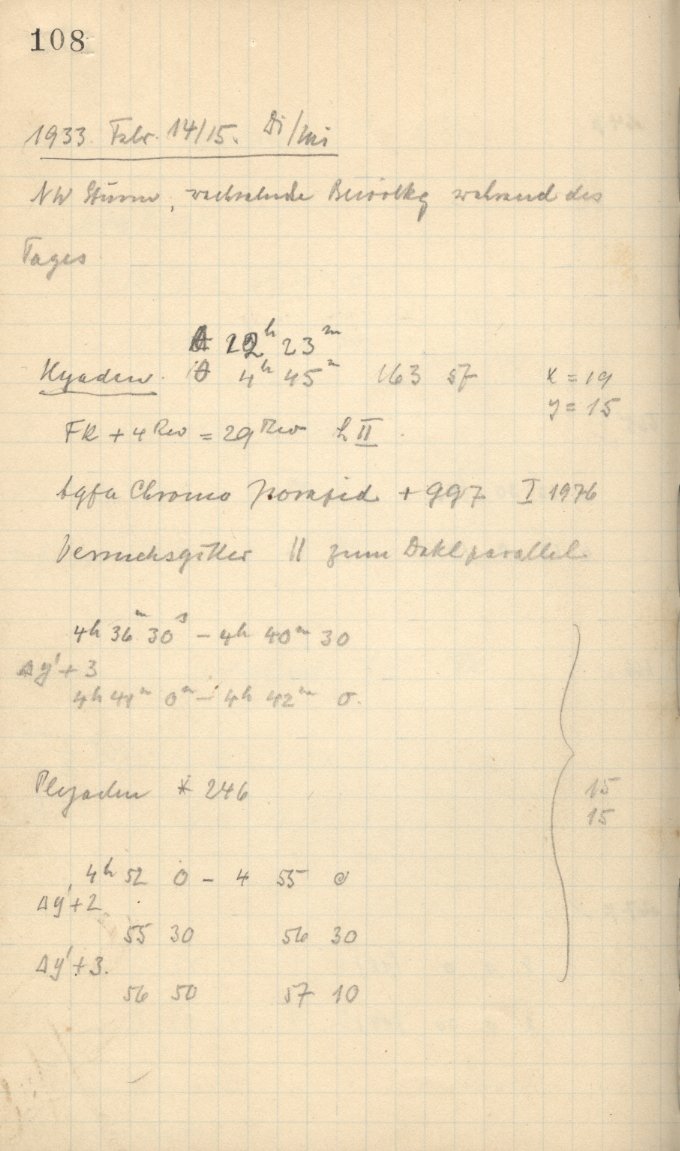 108
1933. Febr. 14/15. Di/Mi
NW Sturm, wechselnde Bewölkg während des
Tages
22h 23m
Hyaden. 4h 45m 163 57 x = 19
y = 15
FR + 4 Rev = 29 Rev h II.
Agfa Chromo + 997 I 1976
Versuchsgitter || zum Dekl parallel.
4h 36m 30s - 4h 40m 30
Δy' + 3
4h 41m 0m - 4h 42m 0.
Plejaden * 246
15
15
4h 52 0 - 4 55 0
Δy' + 2
55 30 56 30
Δy' + 3.
56 50 57 10